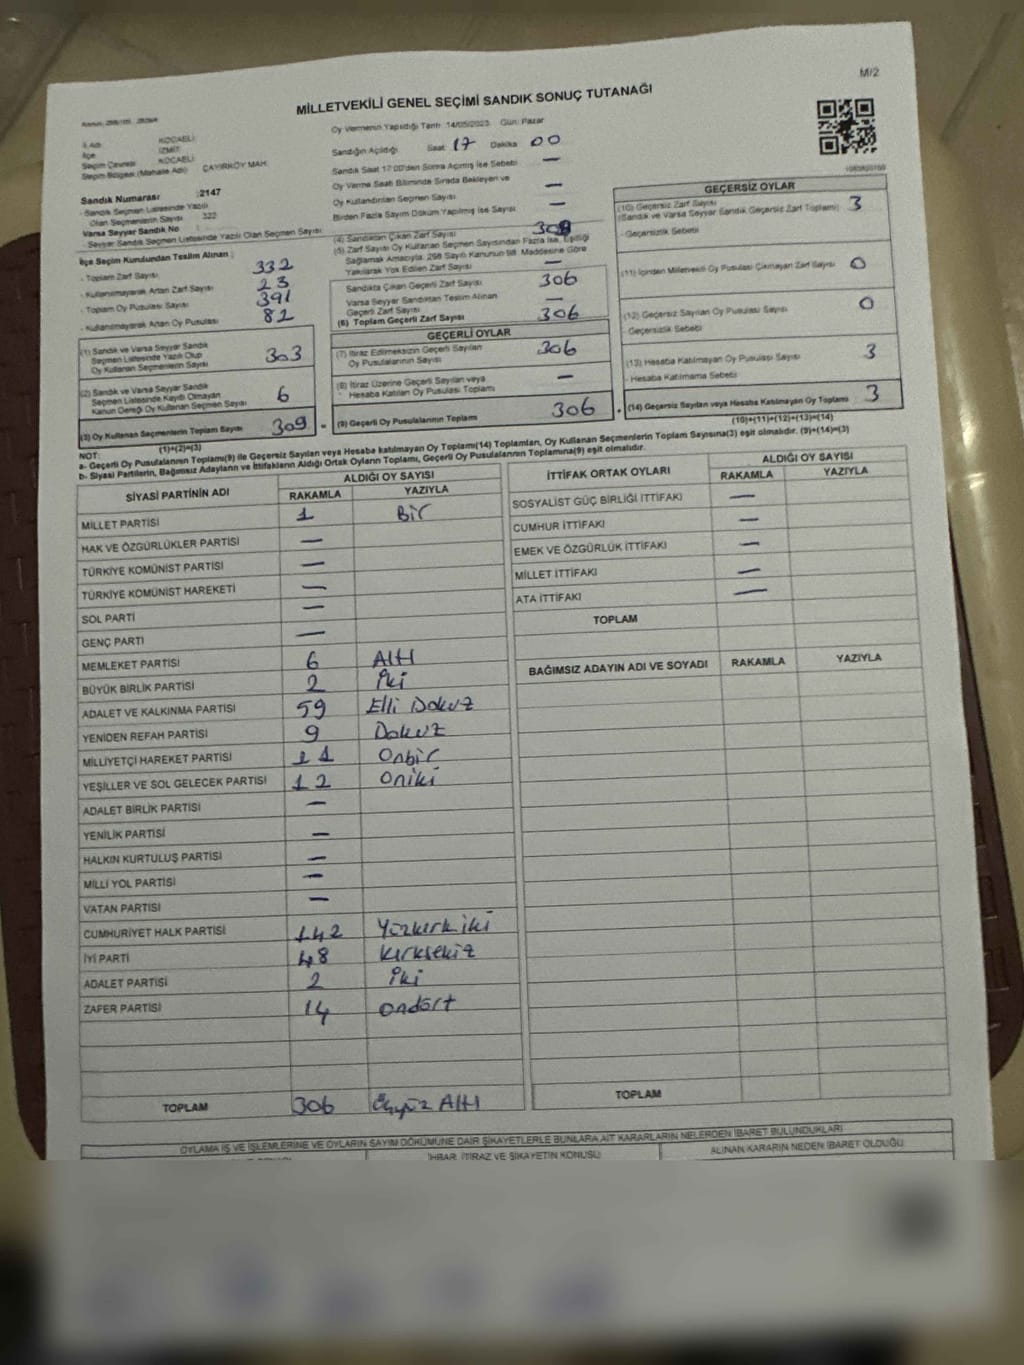 M/2
MİLLETVEKİLİ GENEL SEÇİMİ SANDIK SONUÇ TUTANAĞI
İl Adı KOCAELİ
İlçe İZMİT
Seçim Çevresi KOCAELİ
Seçim Bölgesi (Mahalle Adı) ÇAYIRKÖY MAH.
Sandık Numarası :2147
- Sandık Seçmen Listesinde Yazılı
Olan Seçmenlerin Sayısı 322
Varsa Seyyar Sandık No
- Seyyar Sandık Seçmen Listesinde Yazılı Olan Seçmen Sayısı
Oy Vermenin Yapıldığı Tarih: 14/05/2023 Gün: Pazar
Sandığın Açıldığı Saat 17 Dakika 00
Sandık Saat 17:00'den Sonra Açılmış İse Sebebi —
Oy Verme Saati Bitiminde Sırada Bekleyen ve
Oy Kullandırılan Seçmen Sayısı —
Birden Fazla Sayım Döküm Yapılmış İse Sayısı —
İlçe Seçim Kurulundan Teslim Alınan ;
- Toplam Zarf Sayısı 332
- Kullanılmayarak Artan Zarf Sayısı 23
- Toplam Oy Pusulası Sayısı 391
- Kullanılmayarak Artan Oy Pusulası 82
(1) Sandık ve Varsa Seyyar Sandık
Seçmen Listesinde Yazılı Olup
Oy Kullanan Seçmenlerin Sayısı 303
(2) Sandık ve Varsa Seyyar Sandık
Seçmen Listesinde Kaydı Olmayan
Kanun Gereği Oy Kullanan Seçmen Sayısı 6
(3) Oy Kullanan Seçmenlerin Toplam Sayısı 309
(1)+(2)=(3)
(4) Sandıktan Çıkan Zarf Sayısı 309
(5) Zarf Sayısı Oy Kullanan Seçmen Sayısından Fazla İse, Eşitliği
Sağlamak Amacıyla, 298 Sayılı Kanunun 98. Maddesine Göre
Yakılarak Yok Edilen Zarf Sayısı —
Sandıkta Çıkan Geçerli Zarf Sayısı 306
Varsa Seyyar Sandıktan Teslim Alınan
Geçerli Zarf Sayısı —
(6) Toplam Geçerli Zarf Sayısı 306
GEÇERLİ OYLAR
(7) İtiraz Edilmeksizin Geçerli Sayılan
Oy Pusulalarının Sayısı 306
(8) İtiraz Üzerine Geçerli Sayılan veya
Hesaba Katılan Oy Pusulası Toplamı —
= (9) Geçerli Oy Pusulalarının Toplamı 306 +
GEÇERSİZ OYLAR
(10) Geçersiz Zarf Sayısı 3
(Sandık ve Varsa Seyyar Sandık Geçersiz Zarf Toplamı)
- Geçersizlik Sebebi
(11) İçinden Milletvekili Oy Pusulası Çıkmayan Zarf Sayısı 0
(12) Geçersiz Sayılan Oy Pusulası Sayısı 0
- Geçersizlik Sebebi
(13) Hesaba Katılmayan Oy Pusulası Sayısı 3
- Hesaba Katılmama Sebebi
(14) Geçersiz Sayılan veya Hesaba Katılmayan Oy Toplamı 3
(10)+(11)+(12)+(13)=(14)
NOT:
a- Geçerli Oy Pusulalarının Toplamı(9) ile Geçersiz Sayılan veya Hesaba katılmayan Oy Toplamı(14) Toplamları, Oy Kullanan Seçmenlerin Toplam Sayısına(3) eşit olmalıdır. (9)+(14)=(3)
b- Siyasi Partilerin, Bağımsız Adayların ve İttifakların Aldığı Ortak Oyların Toplamı, Geçerli Oy Pusulalarının Toplamına(9) eşit olmalıdır.
SİYASİ PARTİNİN ADI ALDIĞI OY SAYISI
RAKAMLA YAZIYLA
MİLLET PARTİSİ 1 Bir
HAK VE ÖZGÜRLÜKLER PARTİSİ —
TÜRKİYE KOMÜNİST PARTİSİ —
TÜRKİYE KOMÜNİST HAREKETİ —
SOL PARTİ —
GENÇ PARTİ —
MEMLEKET PARTİSİ 6 Altı
BÜYÜK BİRLİK PARTİSİ 2 İki
ADALET VE KALKINMA PARTİSİ 59 Elli Dokuz
YENİDEN REFAH PARTİSİ 9 Dokuz
MİLLİYETÇİ HAREKET PARTİSİ 11 Onbir
YEŞİLLER VE SOL GELECEK PARTİSİ 12 Oniki
ADALET BİRLİK PARTİSİ —
YENİLİK PARTİSİ —
HALKIN KURTULUŞ PARTİSİ —
MİLLİ YOL PARTİSİ —
VATAN PARTİSİ —
CUMHURİYET HALK PARTİSİ 142 Yüzkırkiki
İYİ PARTİ 48 Kırksekiz
ADALET PARTİSİ 2 İki
ZAFER PARTİSİ 14 Ondört
TOPLAM 306 Üçyüz Altı
İTTİFAK ORTAK OYLARI ALDIĞI OY SAYISI
RAKAMLA YAZIYLA
SOSYALİST GÜÇ BİRLİĞİ İTTİFAKI —
CUMHUR İTTİFAKI —
EMEK VE ÖZGÜRLÜK İTTİFAKI —
MİLLET İTTİFAKI —
ATA İTTİFAKI —
TOPLAM
BAĞIMSIZ ADAYIN ADI VE SOYADI RAKAMLA YAZIYLA
TOPLAM
OYLAMA İŞ VE İŞLEMLERİNE VE OYLARIN SAYIM DÖKÜMÜNE DAİR ŞİKAYETLERLE BUNLARA AİT KARARLARIN NELERDEN İBARET BULUNDUKLARI
İHBAR, İTİRAZ VE ŞİKAYETİN KONUSU ALINAN KARARIN NEDEN İBARET OLDUĞU